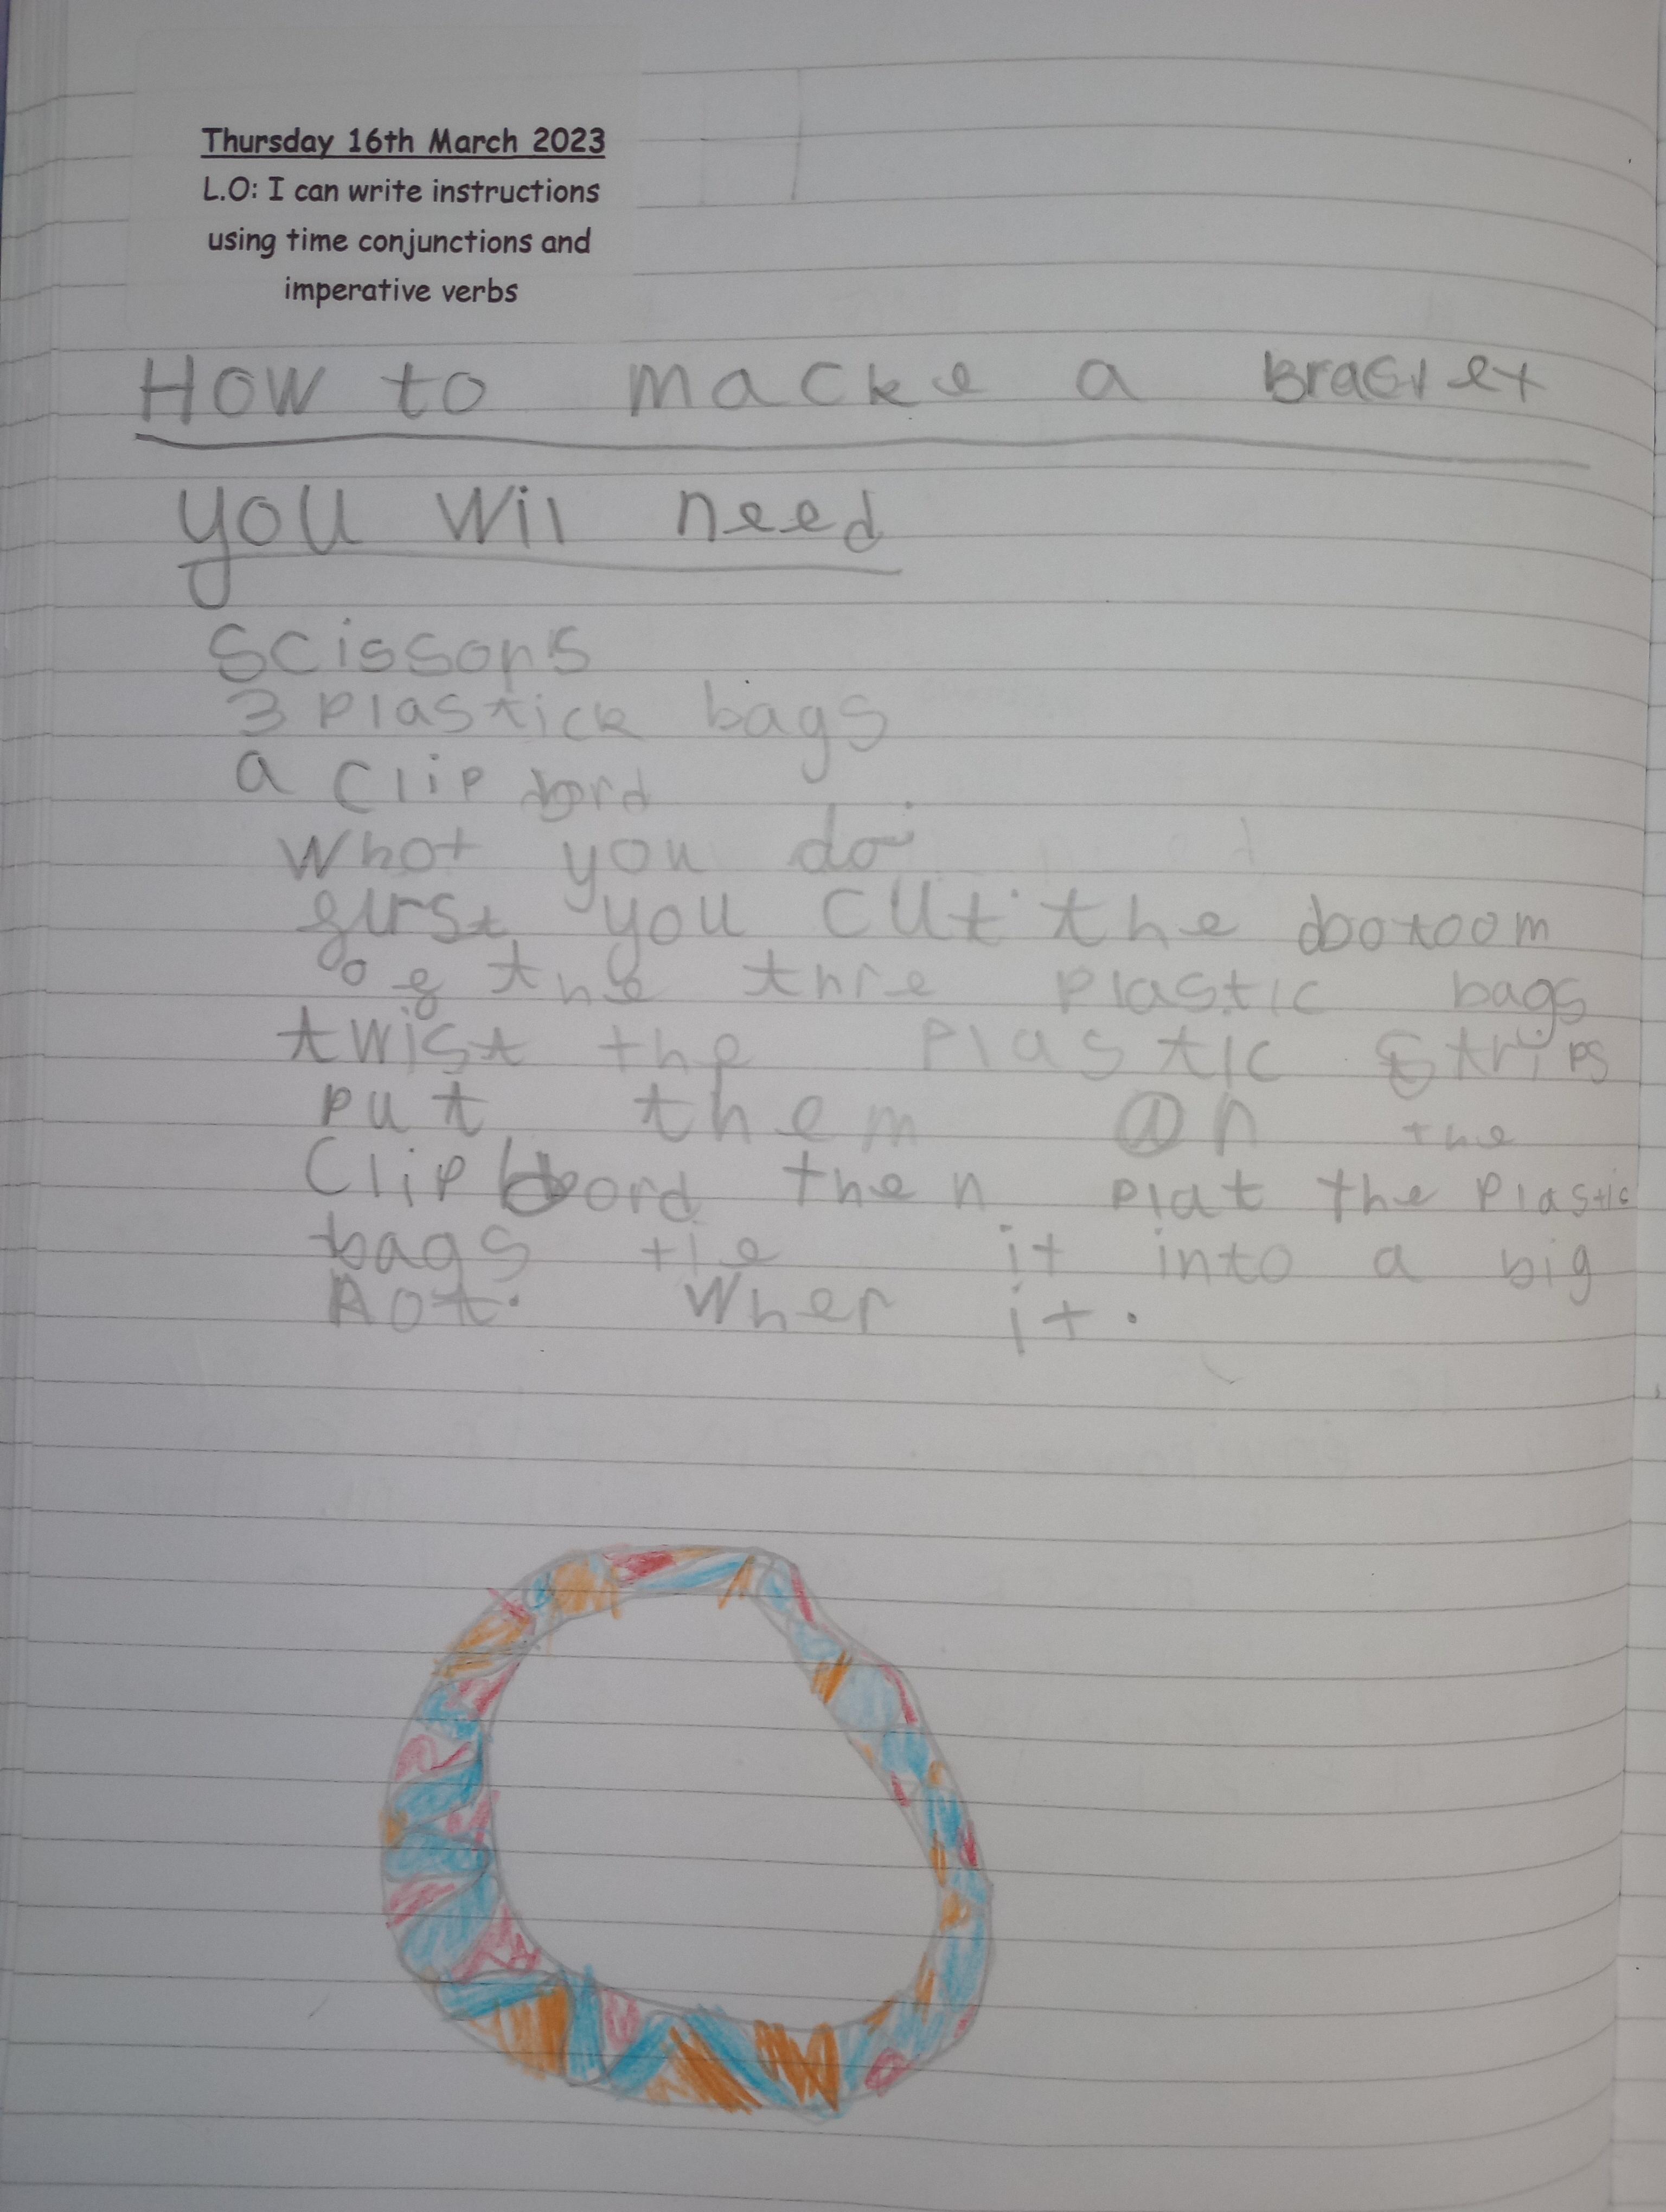 Thursday 16th March 2023
L.O: I can write instructions
using time conjunctions and
imperative verbs
How to macke a Braslet
you wil need
scissors
3 Plastick bags
a Clip bord
What you do
first you cut the botoom
of the thre plastic bags
twist the Plastic strips
put them on the
Clip bord then plat the Plastic
bags tie it into a big
not. Wher it.